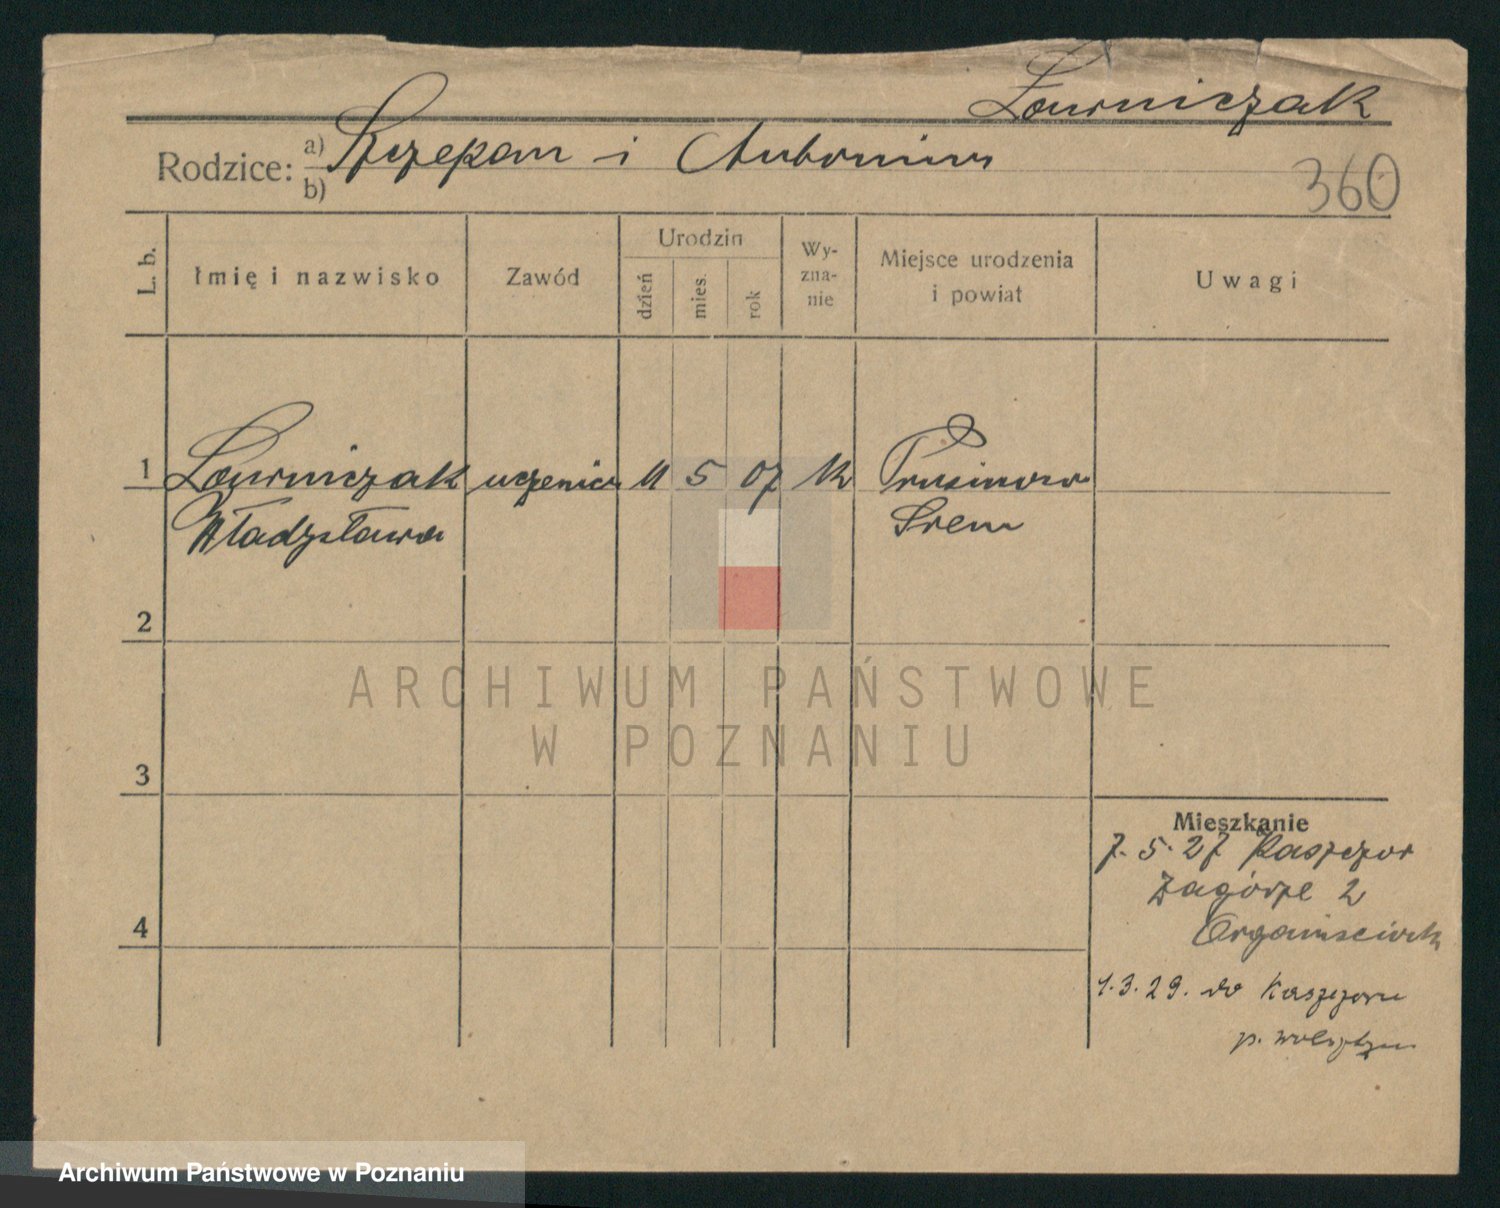 Ławniczak
Rodzice: a) Szczepan i Antonina
b)
360
L. b.
Imię i nazwisko
Zawód
Urodzin
dzień
mies.
rok
Wy-
zna-
nie
Miejsce urodzenia
i powiat
Uwagi
1 Ławniczak uczenica 11 5 07 k Prusinowo
Władysława Śrem
2
ARCHIWUM PAŃSTWOWE
W POZNANIU
3
Mieszkanie
7. 5. 27 Kaszczor
Zagórze 2
4
1. 3. 29. do Kaszczoru
p. Wolsztyn
Archiwum Państwowe w Poznaniu